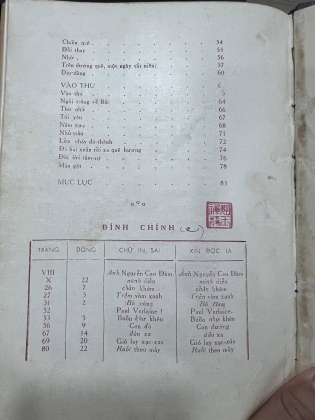 Chiều quê 54
Đôi thay 55
Nhớ 56
Trên đường quê, một ngày tất niên 57
Dịu-dàng 60
VÀO THU
Vào thu
Ngồi trông về Bắc 64
Thu nhớ 66
Tôi yêu 67
Năm sau 68
Nhủ mẫu 71
Lửa cháy đô-thành 72
Đã hai xuân rồi xa quê hương 74
Đôi lời tâm-sự 76
Mãn giờ 78
MỤC LỤC 83
ĐÍNH CHÍNH
TRANG DÒNG CHỮ IN SAI XIN ĐỌC LÀ
VIII Anh Nguyễn Cao Đàm Anh Nguyễn Cao Đàm
X 22 minh diễn minh diễn
26 7 chân khóm chân khóm
27 3 Trên vòm xanh Trên vòm xanh
31 2 Bỏ công Bỏ công
52 Paul Verlaine ! Paul Verlaine.
53 5 Buồn như khêu Buồn như khêu
56 9 Con đò Con đường
67 14 dâu xa dâu xa
69 20 Gió lay xạc-xào Gió lay xạc-xào
80 22 Ruổi theo mây Ruổi theo mây